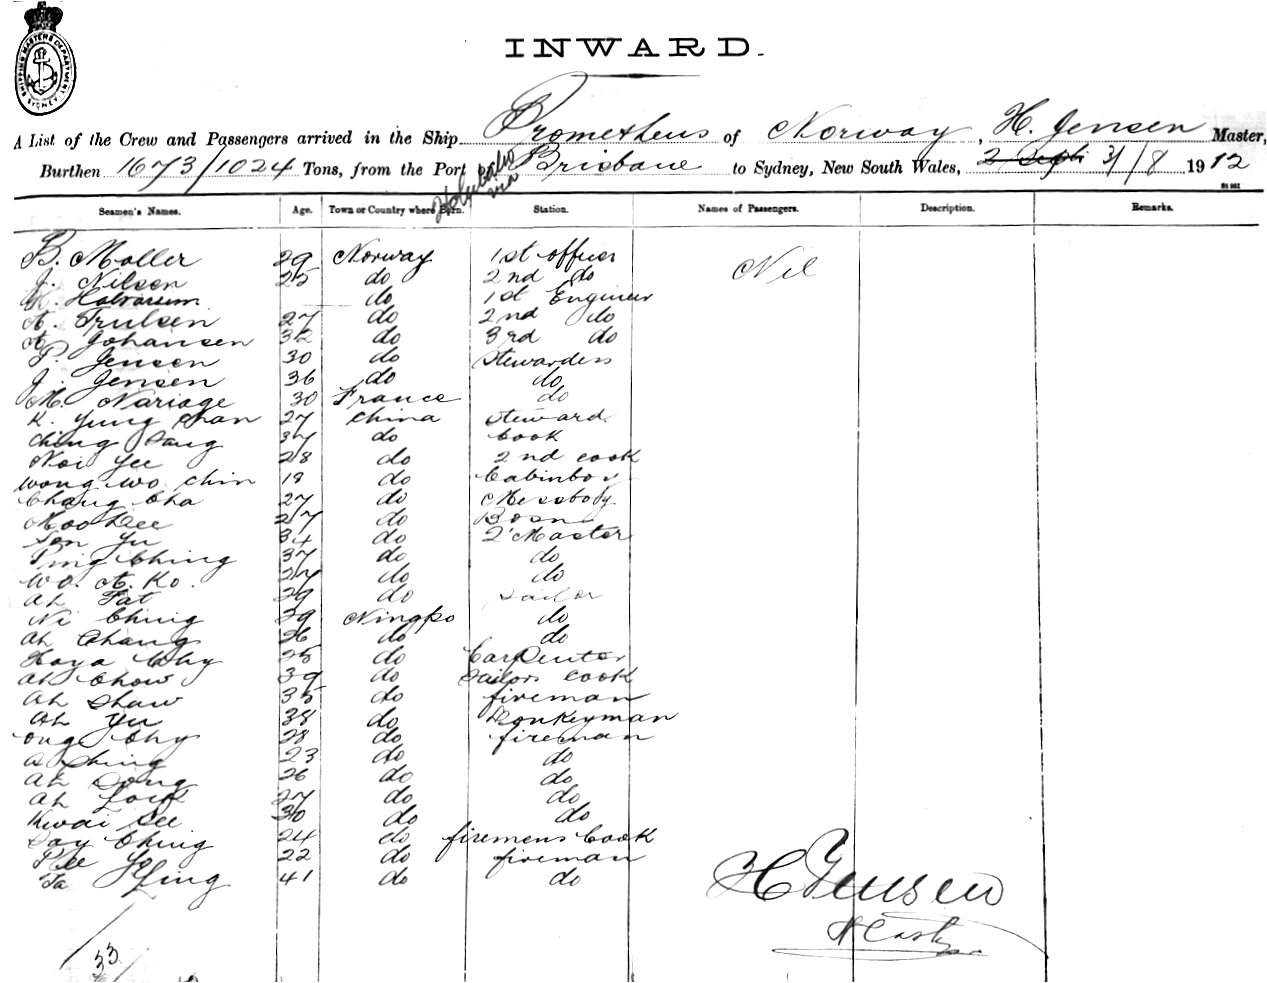 SHIPPING MASTERS DEPARTMENT SYDNEY
INWARD.
A List of the Crew and Passengers arrived in the Ship Prometheus of Norway, H. Jensen Master,
Burthen 1673/1024 Tons, from the Port of via Brisbane to Sydney, New South Wales, 2 Sept 31/8 1912
Seamen's Names. Age. Town or Country where Born. Station. Names of Passengers. Description. Remarks.
B. Moller 29 Norway 1st officer Nil
J. Nilsen 25 do 2nd do
Halvorsen do 1st Engineer
A. Trulsen 27 do 2nd do
A. Johansen 32 do 3rd do
P. Jensen 30 do Stewardess
J. Jensen 36 do do
M. Nariage 30 France do
K. Yung Chan 27 China Steward
Ching Sang 37 do Cook
Noi Yee 28 do 2nd cook
Wong Wo Chin 18 do Cabinboy
Chang Cha 27 do Messboy
Moo Kee 27 do Bosn
Sen Yu 34 do 2' Master
Ping Ching 37 do do
Wo. A. Ko. 27 do do
Ah Fat 29 do Sailor
Ni Ching 29 Ningpo do
Ah Chang 26 do do
Chy 25 do Carpenter
Ah Chow 39 do Sailors Cook
Ah Shaw 35 do fireman
Ah Yu 38 do Donkeyman
Ong Chy 28 do fireman
A Shing 23 do do
Ah Dong 26 do do
Ah 27 do do
Kwai See 30 do do
Say Ching 24 do firemens Cook
Pee Yo 22 do fireman
Ta Ling 41 do do
H Jensen
33